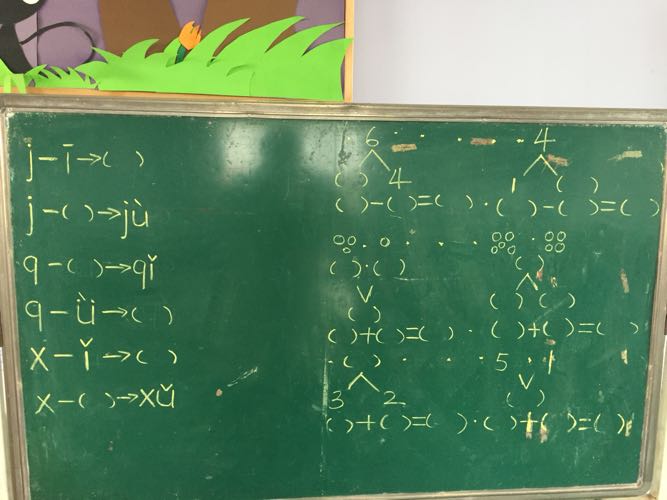 j-ī→( )
j-( )→jù
q-( )→qǐ
q-ǜ→( )
x-ǐ→( )
x-( )→xǚ
6 4
( ) 4 1 ( )
( )-( )=( ) ( )-( )=( )
( ) ( ) ( )
( ) ( ) ( )
( )+( )=( ) ( )+( )=( )
( ) 5 1
3 2 ( )
( )+( )=( ) ( )+( )=( )